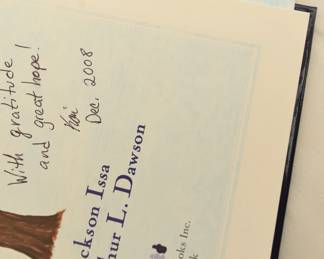 With gratitude
and great hope!
Kai
Dec. 2008
ckson Issa
hur L. Dawson
oks Inc.
k